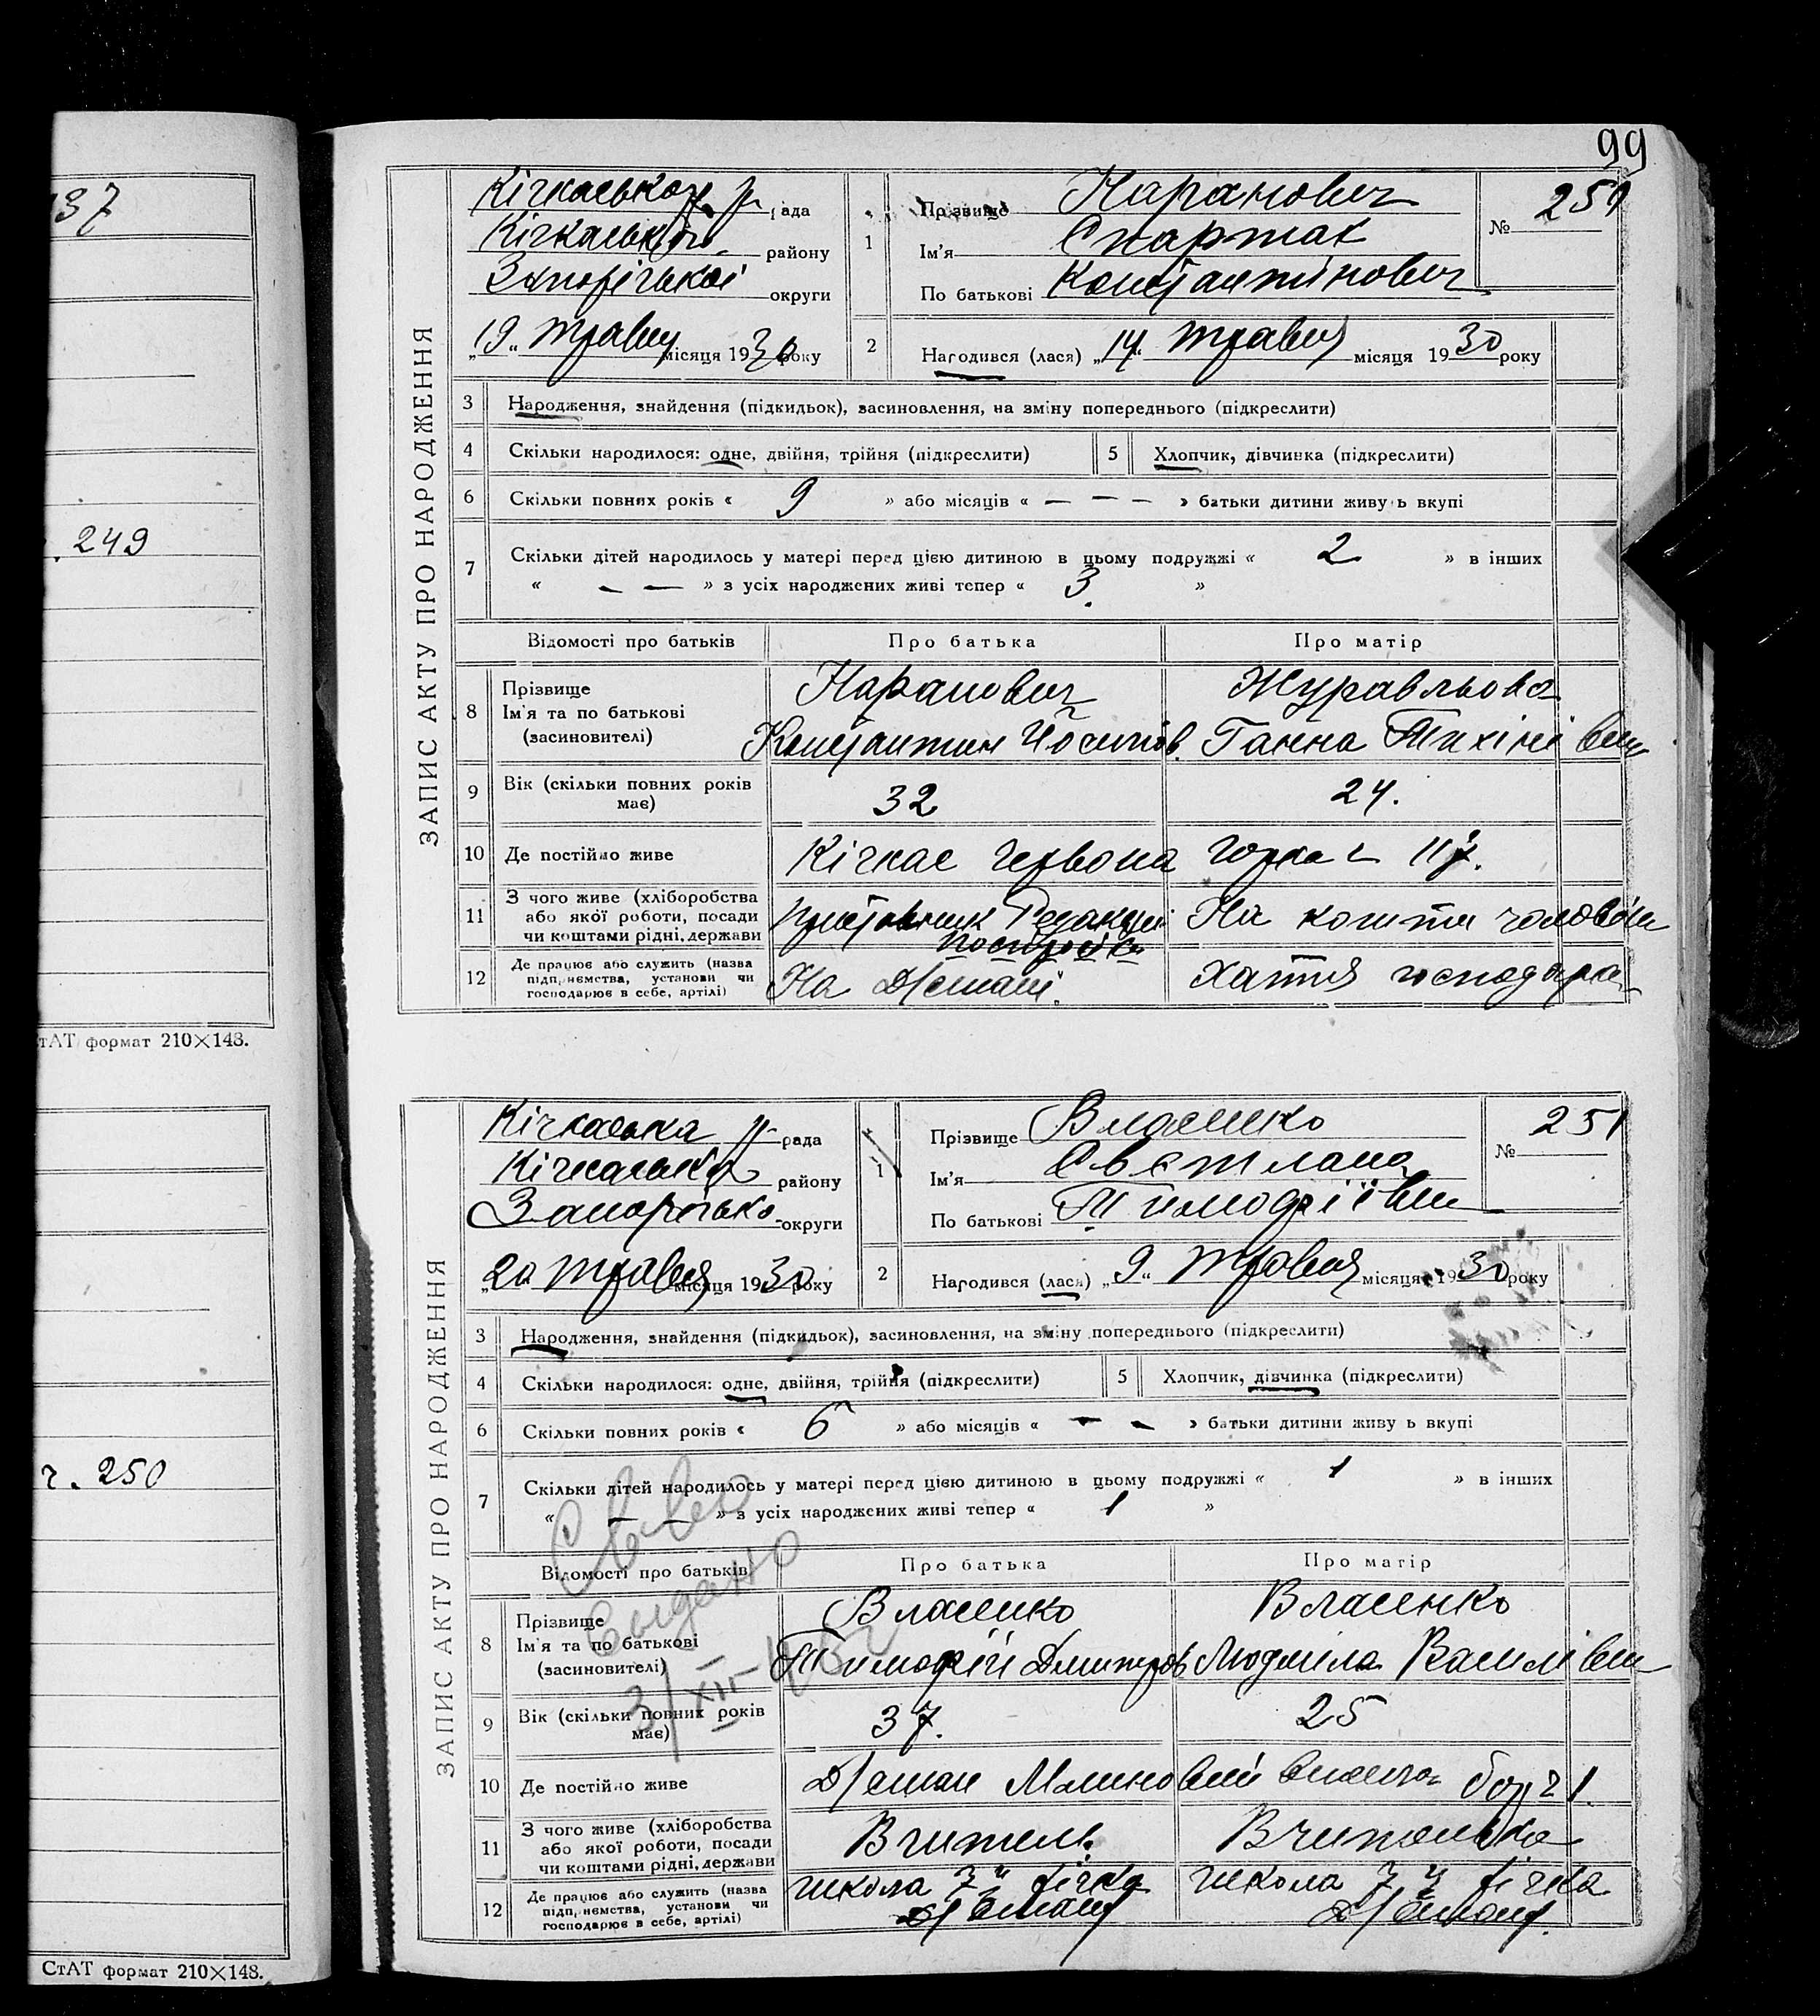 99
37
. 249
тАТ формат 210×148.
г. 250
СтАТ формат 210×148.
ЗАПИС АКТУ ПРО НАРОДЖЕННЯ
Кічкаської р. рада
Кічкаського району
Запорізької округи
„19“ травня місяця 1930 року
1
Прізвище Каранович
Ім'я Спартак
По батькові Константинович
№ 250
2
Народився (лася) „14“ травня місяця 1930 року
3 Народження, знайдення (підкидьок), засиновлення, на зміну попереднього (підкреслити)
4 Скільки народилося: одне, двійня, трійня (підкреслити)
5 Хлопчик, дівчинка (підкреслити)
6 Скільки повних років « 9 » або місяців « — — — » батьки дитини живуть вкупі
7 Скільки дітей народилось у матері перед цією дитиною в цьому подружжі « 2 » в інших
« — — » з усіх народжених живі тепер « 3. »
Відомості про батьків Про батька Про матір
8 Прізвище
Ім'я та по батькові
(засиновителі)
Каранович
Константин Йосипов.
Журавльова
Ганна Тихінівна
9 Вік (скільки повних років має) 32 24.
10 Де постійно живе Кічкас Червона горка 117.
11 З чого живе (хліборобства або якої роботи, посади чи коштами рідні, держави
Редакції
На кошти чоловіка
12 Де працює або служить (назва підприємства, установи чи господарює в себе, артілі)
На Дн
Хатня господарка
ЗАПИС АКТУ ПРО НАРОДЖЕННЯ
Кічкаська р. рада
Кічкаська району
Запорізько округи
„20 травня місяця 1930 року
1
Прізвище Власенко
Ім'я Свєтлана
По батькові Тимофіївна
№ 251
2
Народився (лася) „9“ травня місяця 1930 року
3 Народження, знайдення (підкидьок), засиновлення, на зміну попереднього (підкреслити)
4 Скільки народилося: одне, двійня, трійня (підкреслити)
5 Хлопчик, дівчинка (підкреслити)
6 Скільки повних років « 6 » або місяців « — — » батьки дитини живуть вкупі
7 Скільки дітей народилось у матері перед цією дитиною в цьому подружжі « 1 » в інших
« — — » з усіх народжених живі тепер « 1 »
Відомості про батьків Про батька Про матір
видано
8 Прізвище
Ім'я та по батькові
(засиновителі)
Власенко
Тимофій Дмитров
Власенко
Людмила Василівна
9 Вік (скільки повних років має) 37. 25
10 Де постійно живе
11 З чого живе (хліборобства або якої роботи, посади чи коштами рідні, держави
Вчитель.
Вчителька
12 Де працює або служить (назва підприємства, установи чи господарює в себе, артілі)
школа
школа